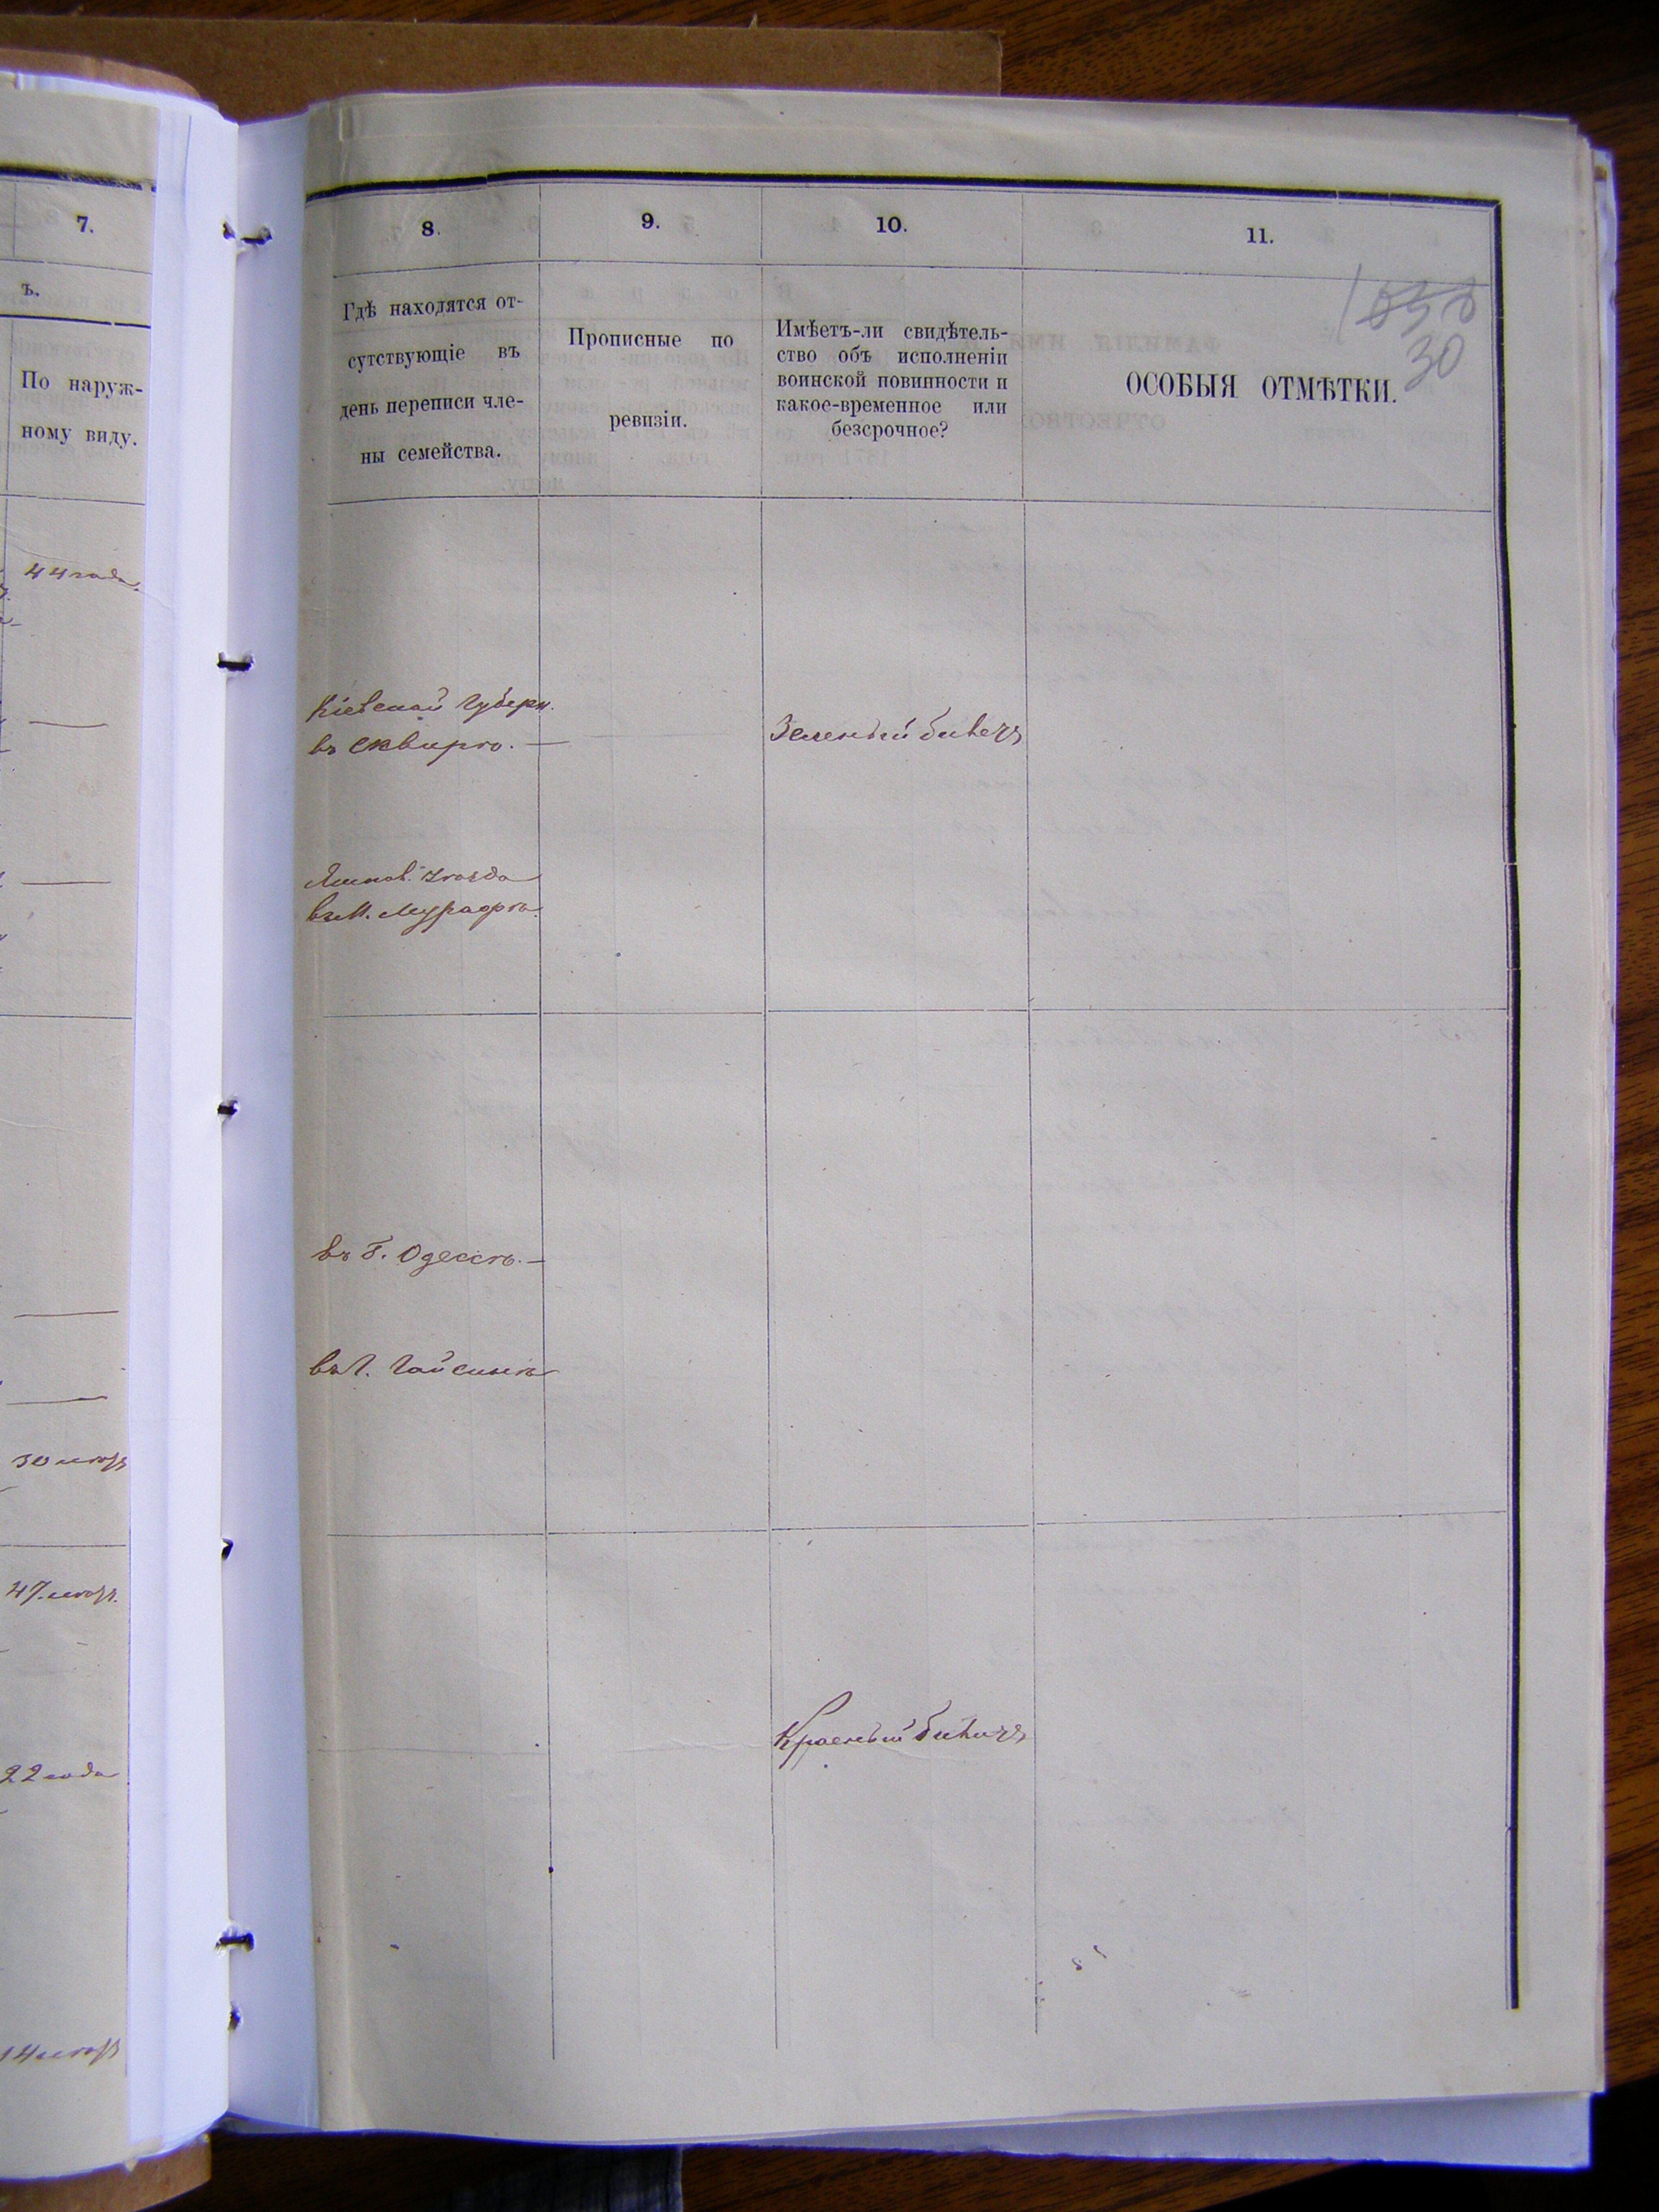 7.
ъ.
По наруж-
ному виду.
44 года
30 лѣтъ
47 лѣтъ.
22 года
14 лѣтъ
8.
9.
10.
11.
Гдѣ находятся от-
сутствующіе въ
день переписи чле-
ны семейства.
Прописные по
ревизіи.
Имѣетъ-ли свидѣтель-
ство объ исполненіи
воинской повинности и
какое-временное или
безсрочное?
ОСОБЫЯ ОТМѢТКИ.
30
Кіевской Губерн.
въ Сквирѣ. —
Зеленый билетъ
Ямпол. уѣзда
въ М. Мурафѣ.
въ Г. Одессѣ. —
въ Г. Гайсинѣ
Красный билетъ